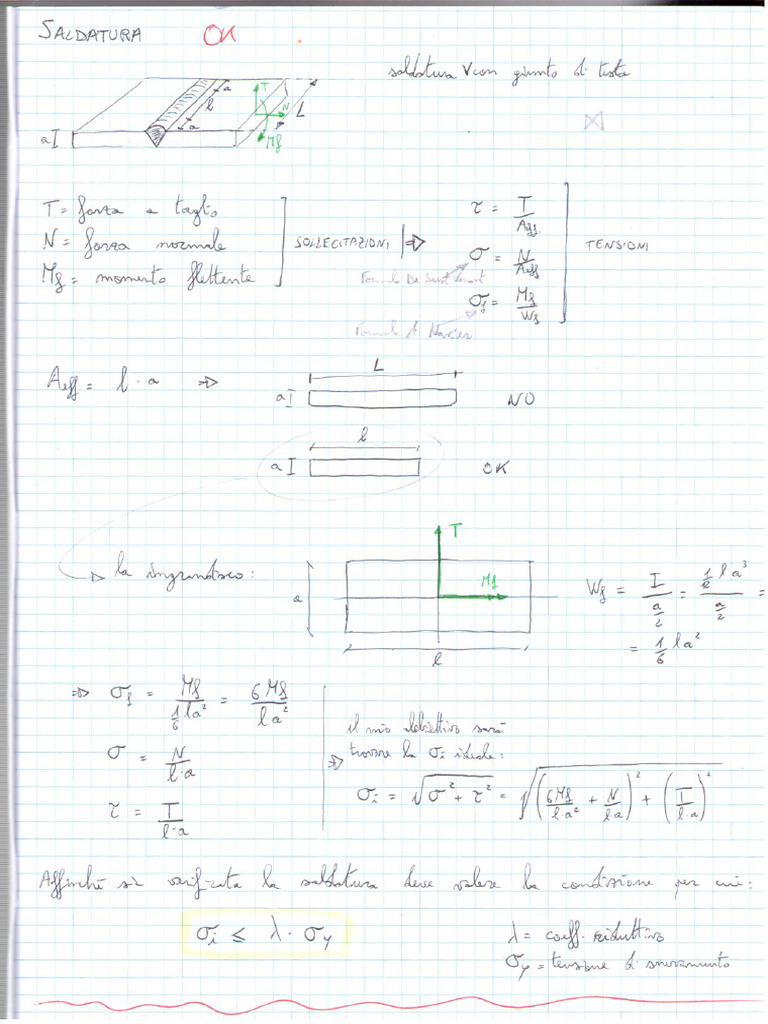 SALDATURA OK
saldatura V con giunto di testa
a
l
a
T
N
L
a
Mf
T = forza a taglio
N = forza normale
Mf = momento flettente
SOLLECITAZIONI ⇒
τ = T/Aeff.
σ = N/Aeff
Formula De Saint Venant
σf = Mf/Wf
Formula di Navier
TENSIONI
Aeff = l · a ⇒
L
a
NO
l
a
OK
la ingrandisco:
T
Mf
a
l
Wf = I/(a/2) = (1/12 l a³)/(a/2) =
= 1/6 l a²
⇒ σf = Mf/(1/6 l a²) = 6Mf/(l a²)
σ = N/(l·a)
τ = T/(l·a)
il mio obiettivo sarà
⇒ trovare la σi ideale:
σi = √(σ² + τ²) = √((6Mf/(l·a²) + N/(l·a))² + (T/(l·a))²)
Affinché sia verificata la saldatura deve valere la condizione per cui:
σi ≤ λ · σy
λ = coeff. riduttivo
σy = tensione di snervamento